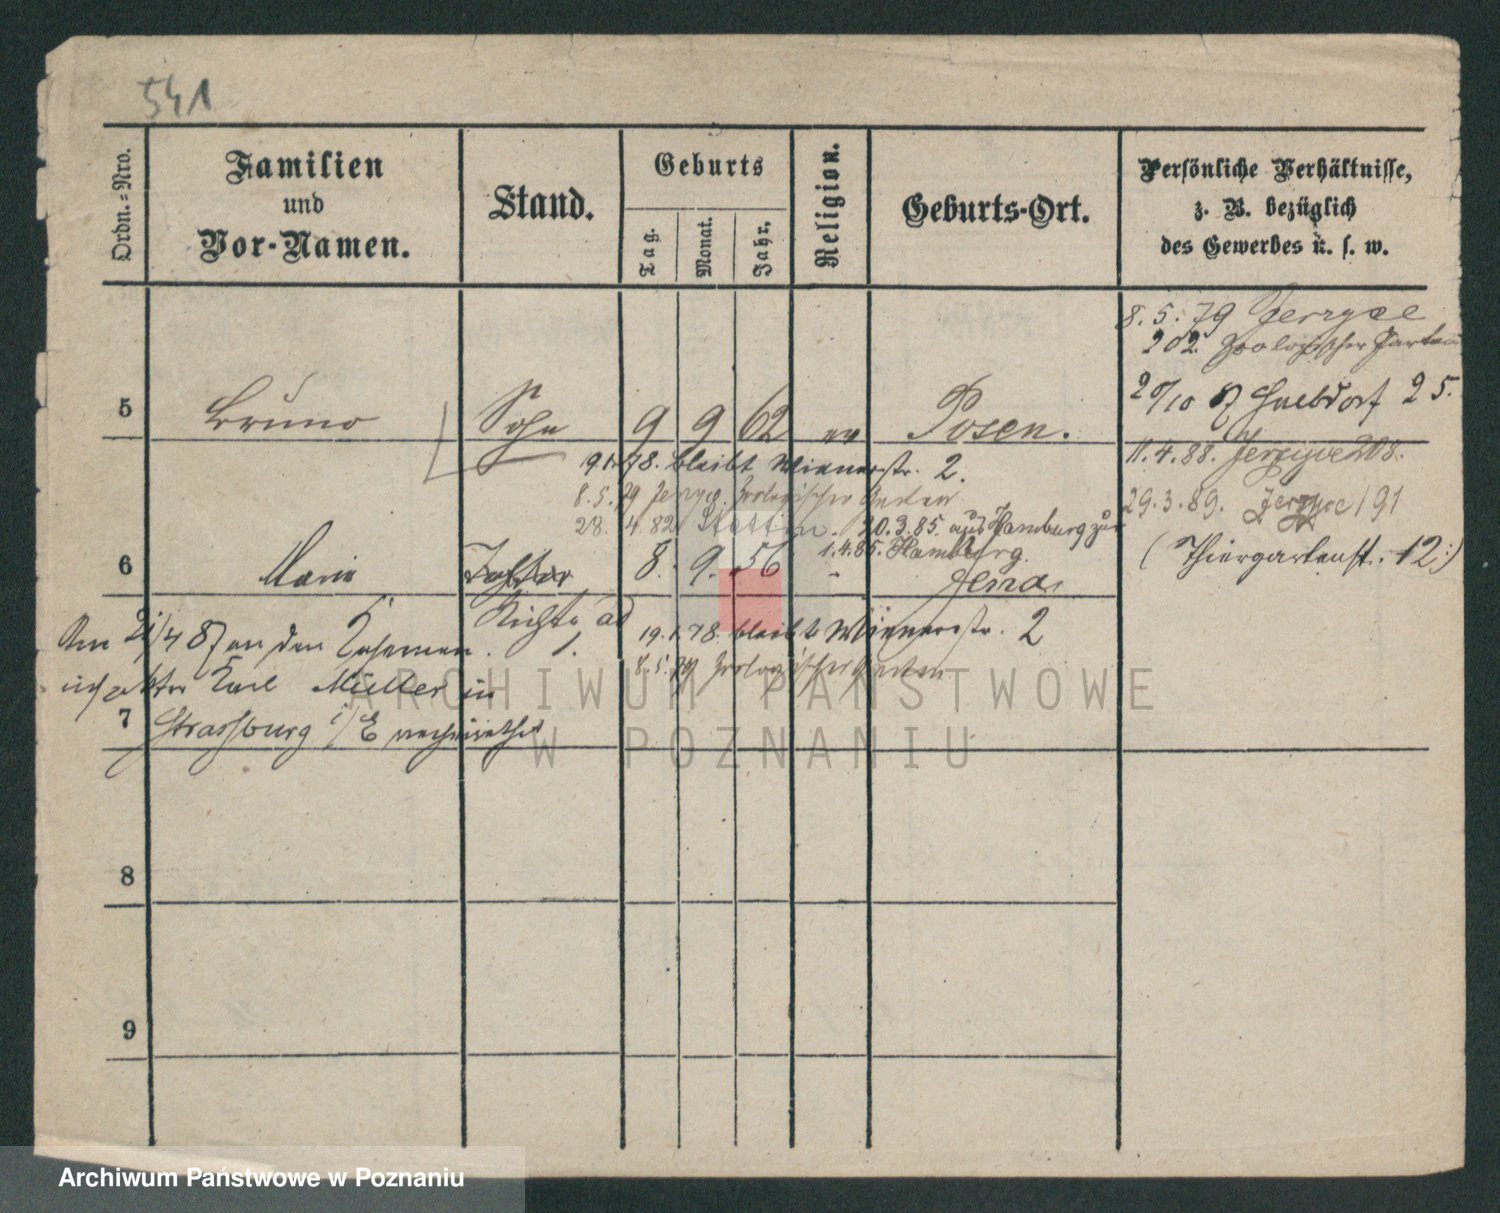 541
Ordn.-Nro.
Familien
und
Vor-Namen.
Stand.
Geburts
Tag.
Monat.
Jahr.
Religion.
Geburts-Ort.
Persönliche Verhältnisse,
z. B. bezüglich
des Gewerbes u. s. w.
8.5.79 Jerzyce
202. Zoologischer Garten
5
Bruno
Sohn
9
9
62
ev
Posen.
20/10 87 25.
19.1.78. bleibt Wienerstr. 2.
11.4.88. Jerzyce 208.
8.5.79 Jerzyce. Zoologischer Garten
29.3.89. Jerzyce 191
28. 4. 82 Stettin. 20.3.85. aus Hamburg zur
1.4.85. Hamburg.
(Thiergartenst. 12:)
6
Marie
Tochter
8.
9.
56
"
Jena.
Nichte ad
1.
19.1.78. bleibt Wienerstr. 2
8.5.79 Zoologischer Garten
Am 21/4 87 an den
Karl Müller in
7
Strassburg i/E verheirathet
ARCHIWUM PAŃSTWOWE
W POZNANIU
8
9
Archiwum Państwowe w Poznaniu